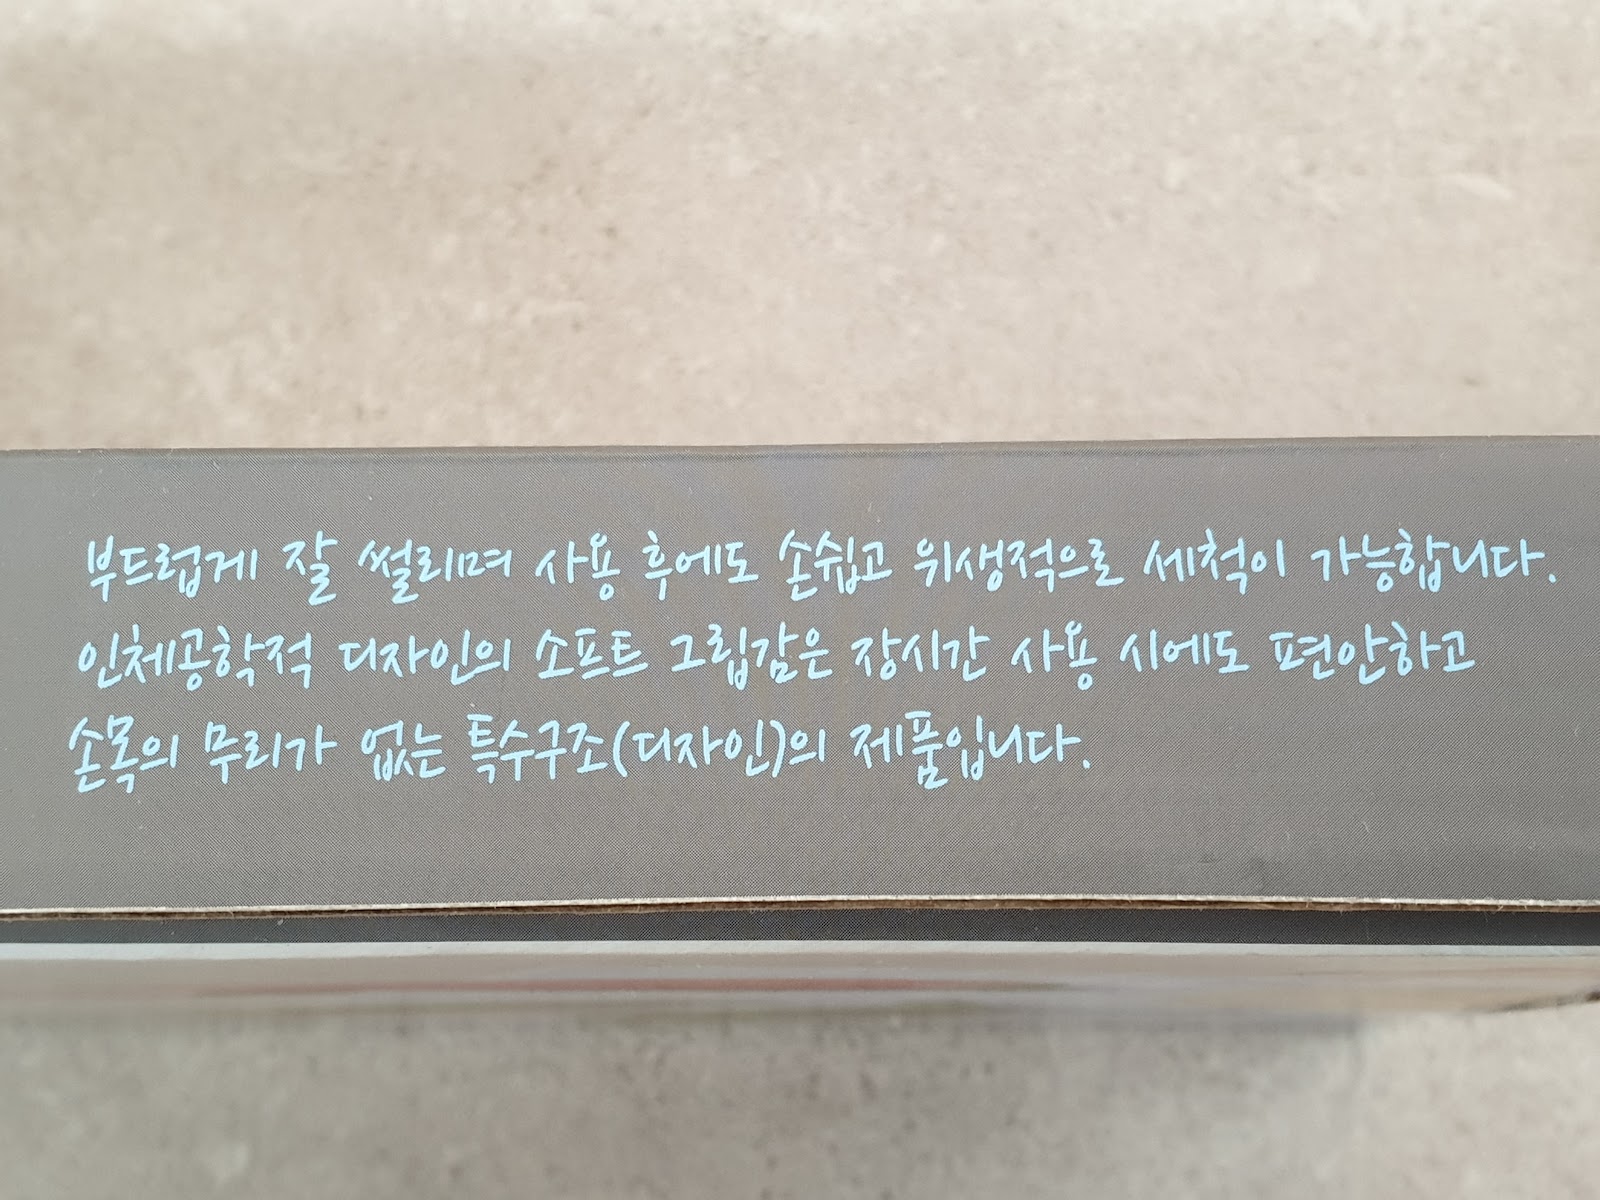 부드럽게 잘 썰리며 사용 후에도 손쉽고 위생적으로 세척이 가능합니다.
인체공학적 디자인의 소프트 그립감은 장시간 사용 시에도 편안하고
손목의 무리가 없는 특수구조(디자인)의 제품입니다.